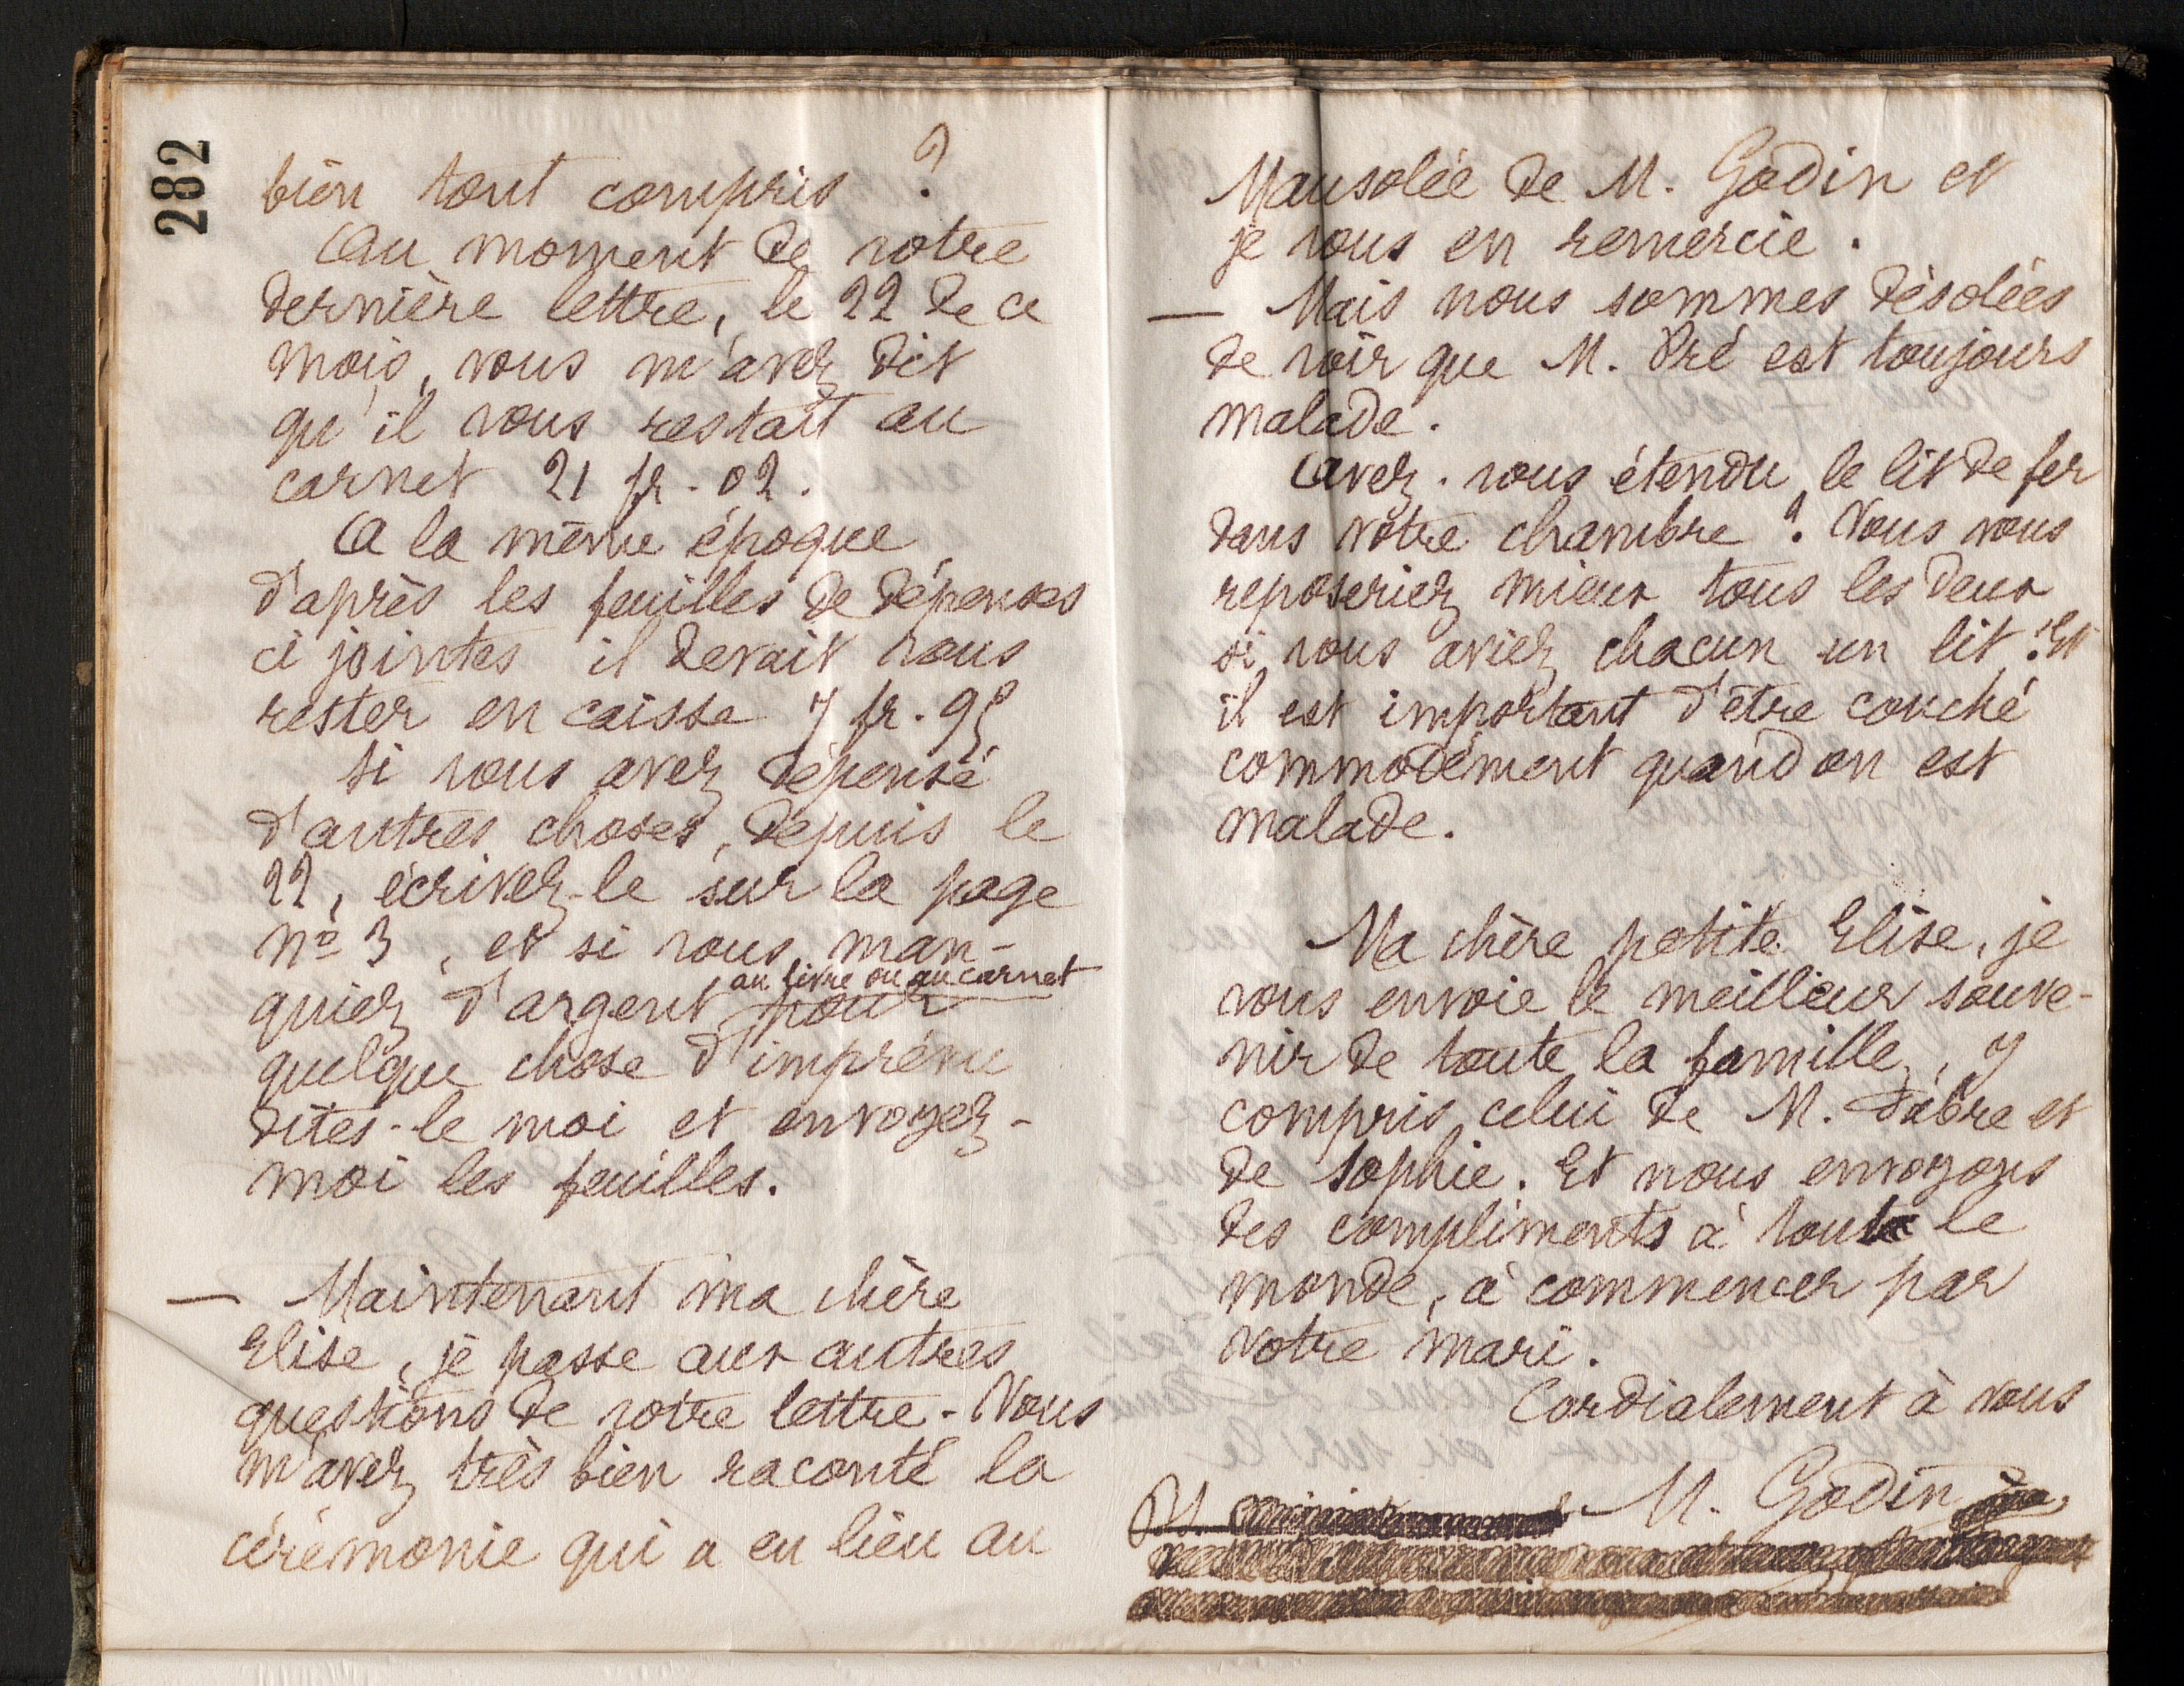 282
bien tout compris ?
Au moment de votre
dernière lettre, le 22 de ce
mois, vous m'avez dit
qu'il vous restait au
carnet 21 fr. 02.
A la même époque
d'après les feuilles de dépenses
ci jointes il devait vous
rester en caisse 7 fr. 95
si vous avez dépensé
d'autres choses, depuis le
22, écrivez-le sur la page
nº 3, et si vous man-
quiez d'argent au livre ou au carnet pour
quelque chose d'imprévu
dites-le moi et envoyez-
moi les feuilles.
— Maintenant ma chère
Elise, je passe aux autres
questions de votre lettre. Vous
m'avez très bien raconté la
cérémonie qui a eu lieu au
Mausolée de M. Godin et
je vous en remercie.
— Mais nous sommes désolées
de voir que M. Pré est toujours
malade.
Avez-vous étendu le lit de fer
dans votre chambre ? Vous vous
reposeriez mieux tous les deux
si vous aviez chacun un lit ! Et
il est important d'être couché
commodément quand on est
malade.
Ma chère petite Elise, je
vous envoie le meilleur souve-
nir de toute la famille, y
compris celui de M. Fabre et
de Sophie. Et nous envoyons
des compliments à tout le
monde, à commencer par
votre mari.
Cordialement à vous
M. Godin